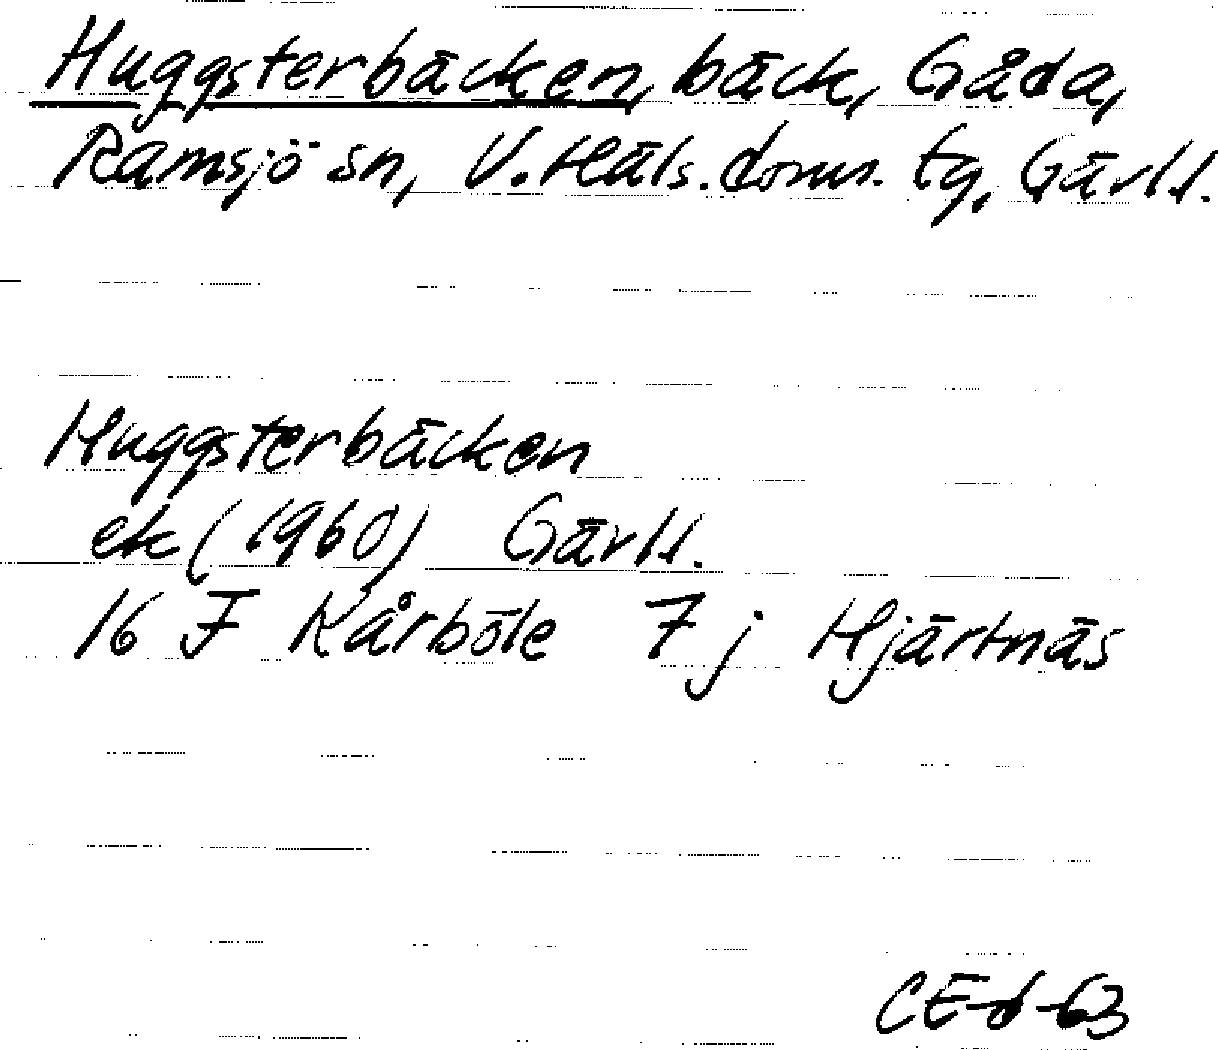 Huggsterbäcken, bäck, Gåda,
Ramsjö sn, V. Häls. doms. tg, Gävl.
Huggsterbäcken
ek (1960) Gävl.
16 F Kårböle 7 j Hjärtnäs
CE-d-63